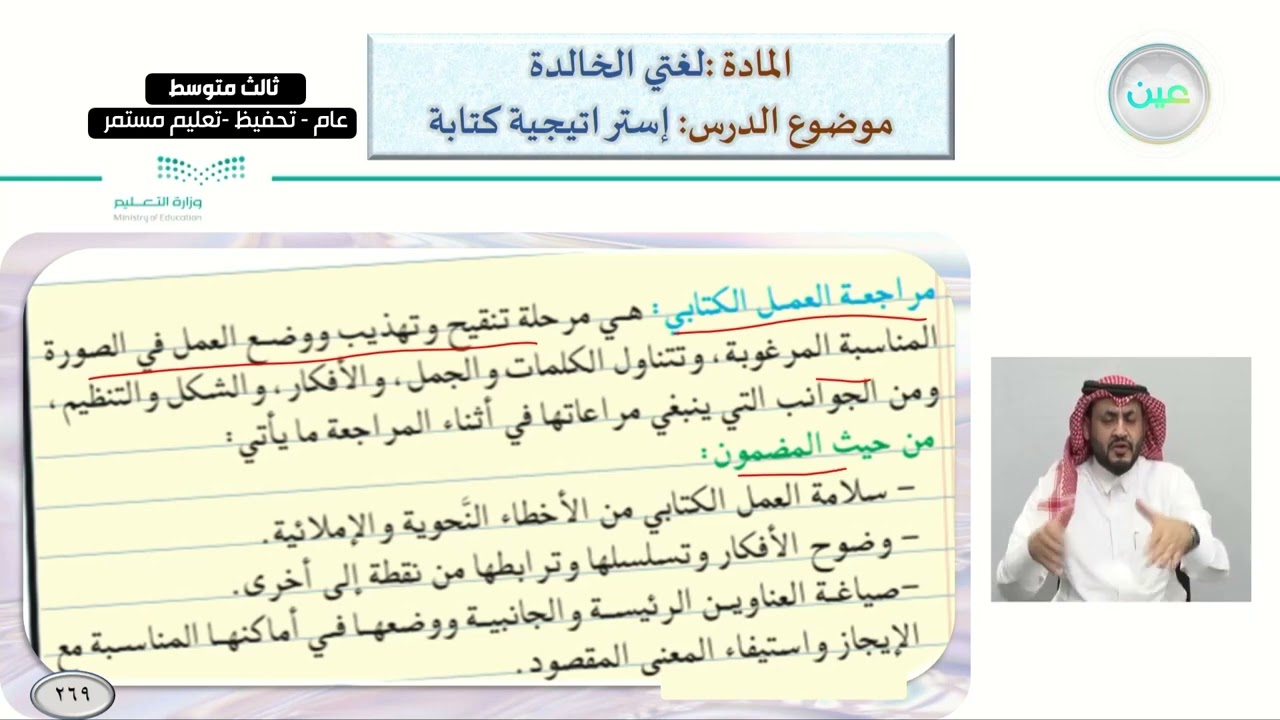 المادة :لغتي الخالدة
موضوع الدرس: إستراتيجية كتابة
ثالث متوسط
عام - تحفيظ -تعليم مستمر
عين
وزارة التعليم
Ministry of Education
مراجعة العمل الكتابي : هي مرحلة تنقيح وتهذيب ووضع العمل في الصورة
المناسبة المرغوبة ، وتتناول الكلمات والجمل، والأفكار، والشكل والتنظيم،
ومن الجوانب التي ينبغي مراعاتها في أثناء المراجعة ما يأتي:
من حيث المضمون :
- سلامة العمل الكتابي من الأخطاء النَّحوية والإملائية.
- وضوح الأفكار وتسلسلها وترابطها من نقطة إلى أخرى.
-صياغة العناوين الرئيسة والجانبية ووضعها في أماكنها المناسبة مع
الإيجاز واستيفاء المعنى المقصود.
٢٦٩